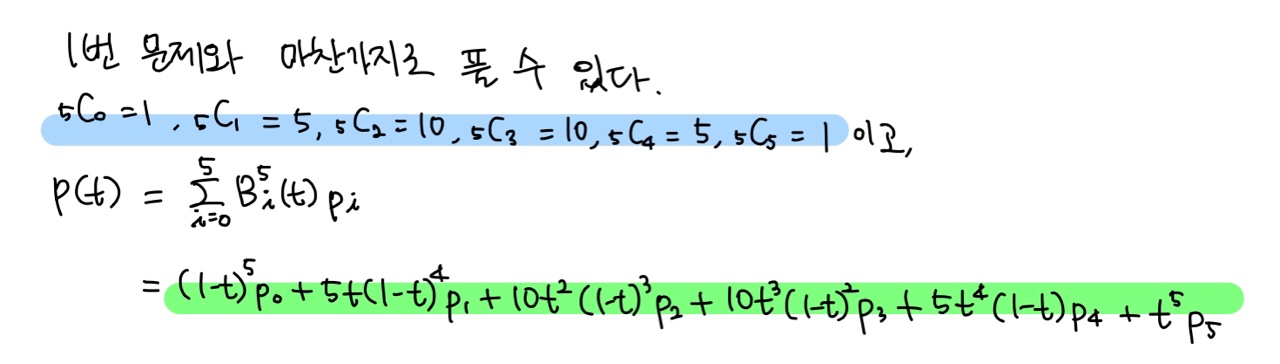 1번 문제와 마찬가지로 풀 수 있다.
₅C₀ = 1, ₅C₁ = 5, ₅C₂ = 10, ₅C₃ = 10, ₅C₄ = 5, ₅C₅ = 1 이고,
p(t) = ∑_{i=0}^{5} B_i^5(t) p_i
= (1-t)^5 p₀ + 5t(1-t)^4 p₁ + 10t²(1-t)³ p₂ + 10t³(1-t)² p₃ + 5t⁴(1-t) p₄ + t⁵ p₅